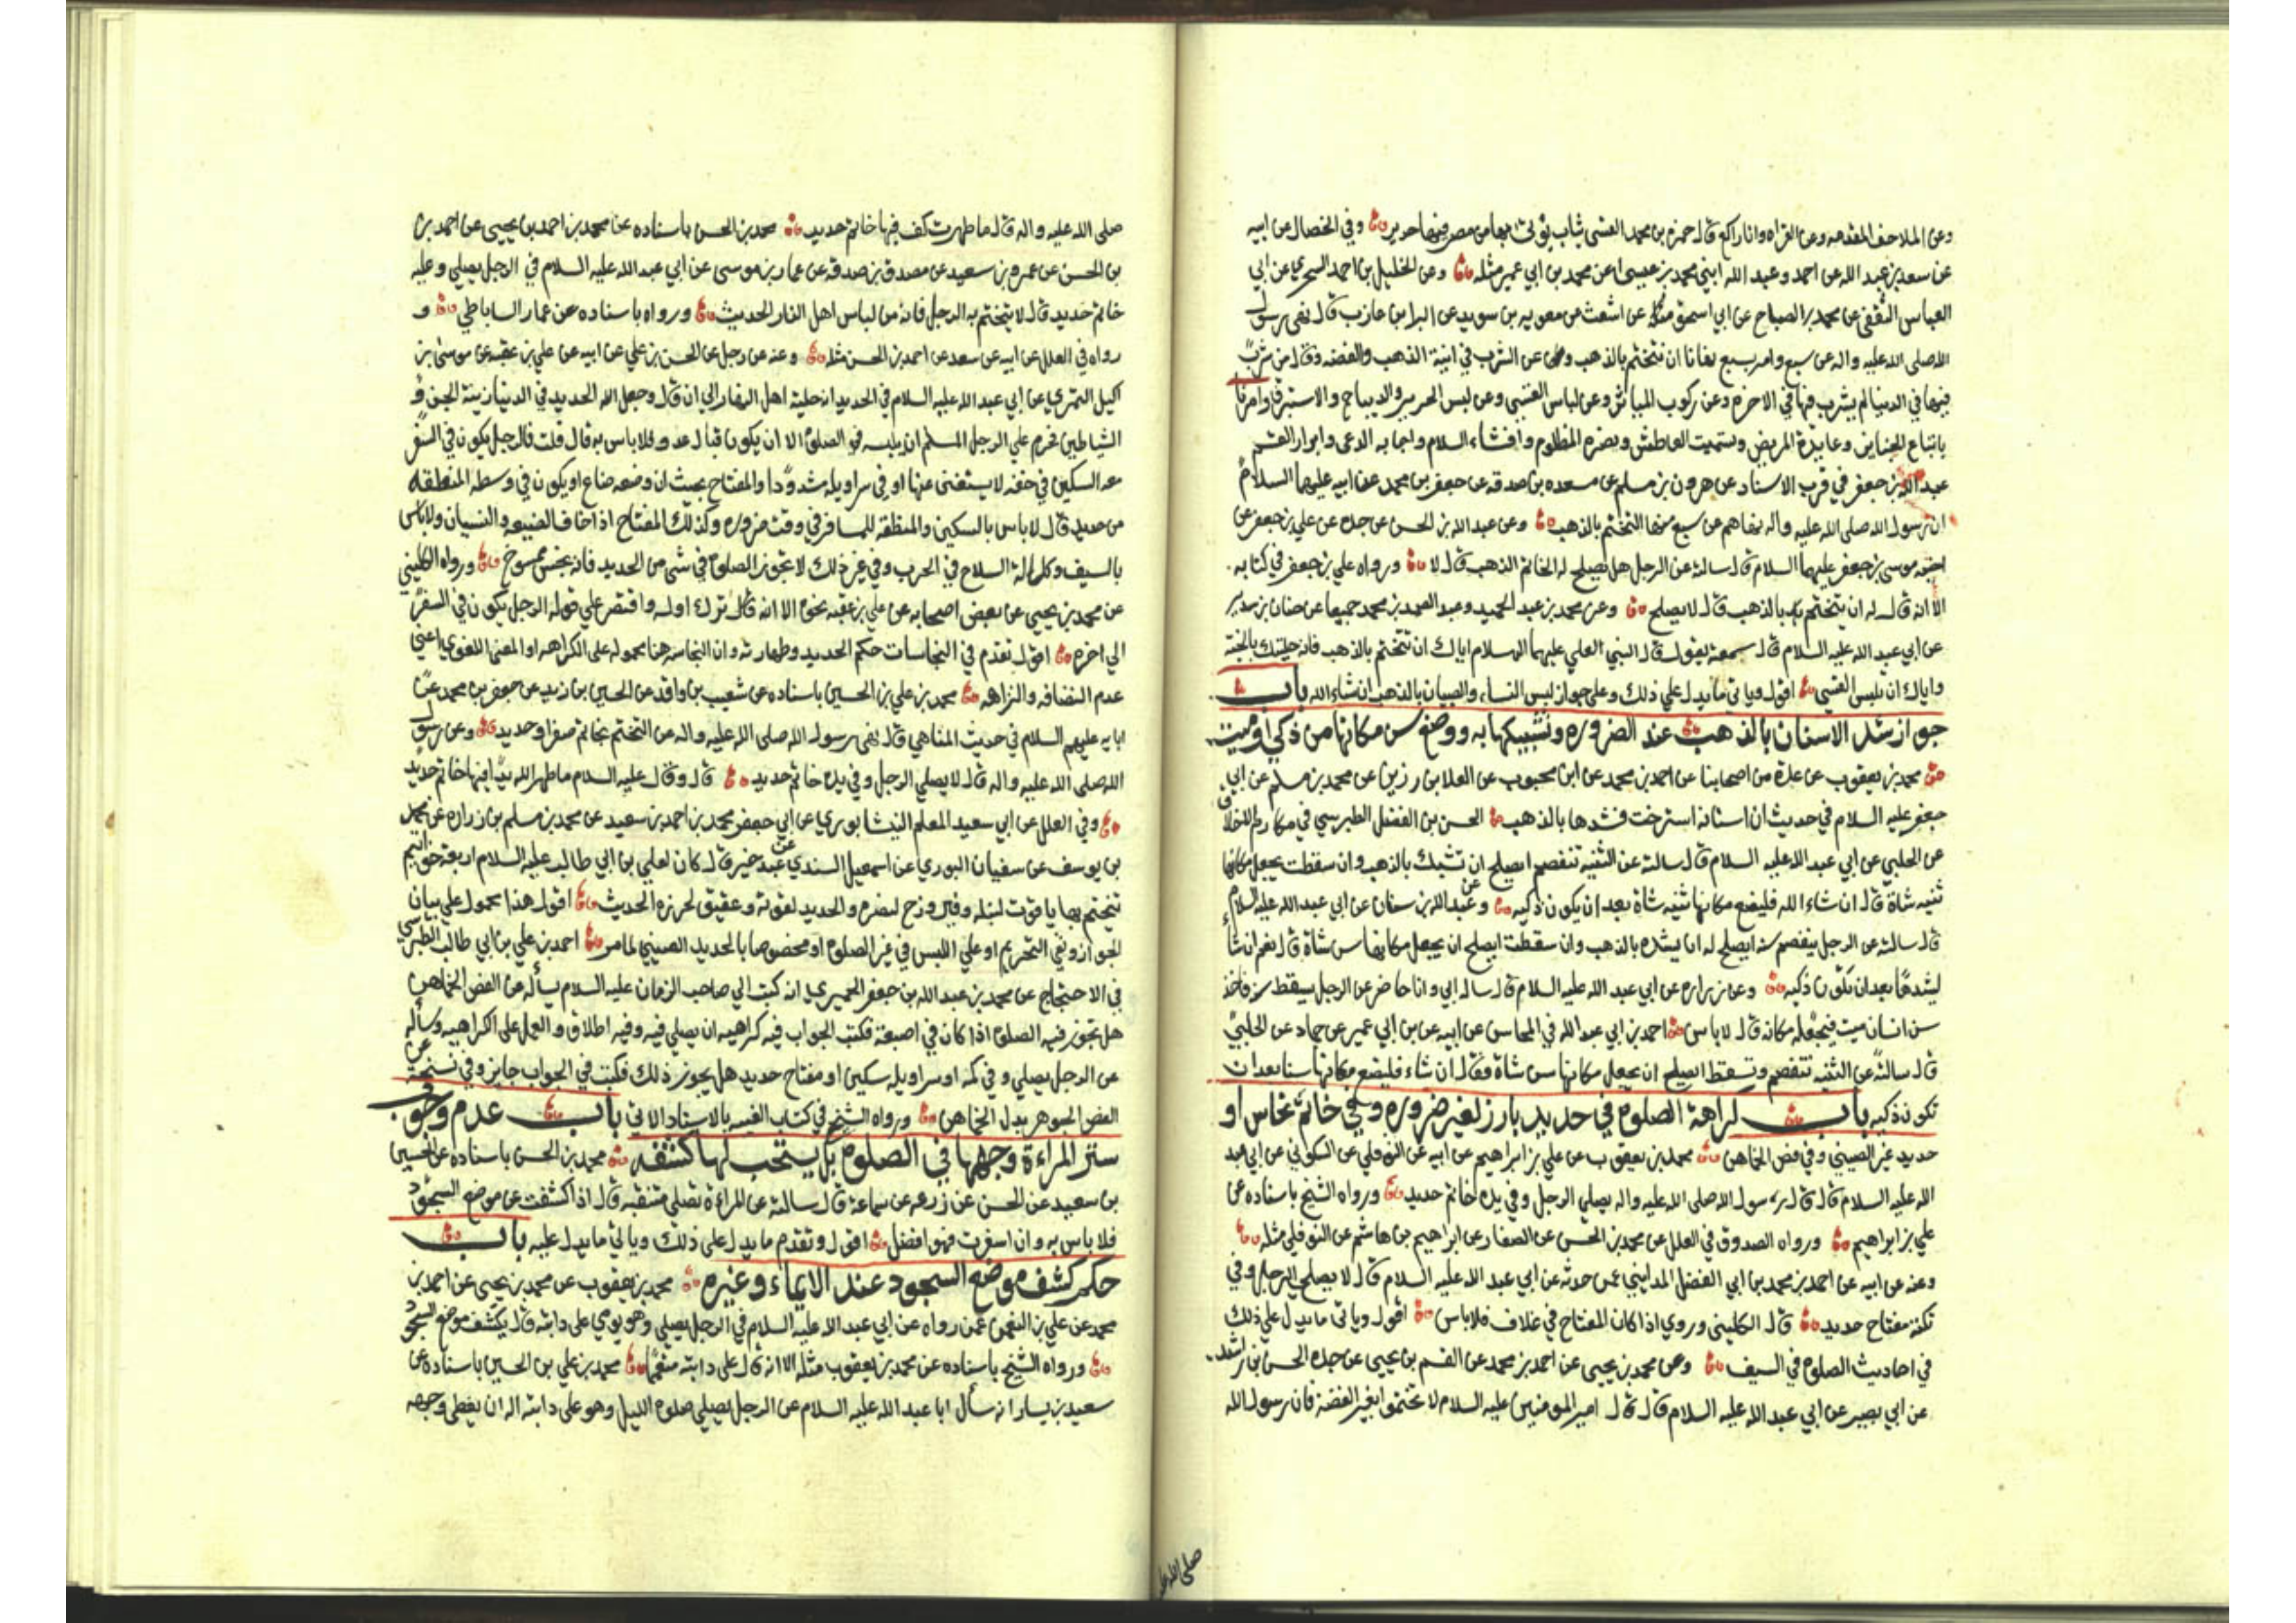 وعن الملاحف المقدمه وعن القراه وانا راكع قال حمزه بن محمد القسى ثياب يؤتى بها من مصر فيها حرير وفي الخصال عن ابيه
عن سعد بن عبد الله عن احمد وعبد الله ابني محمد بن عيسى عن محمد بن ابي عمير مثله وعن الخليل بن احمد السجزي عن ابي
العباس الثقفى عن محمد بن الصباح عن ابي اسحق عن اشعث عن معويه بن سويد عن البرا بن عازب قال نهى رسول
الله صلى الله عليه واله عن سبع وامر بسبع نهانا ان نتختم بالذهب وعن الشرب في انية الذهب والفضه وقال من شرب
فيها في الدنيا لم يشرب فيها في الاخره وعن ركوب المياثر وعن لباس القسى وعن لبس الحرير والديباج والاستبرق وامرنا
باتباع الجنايز وعيادة المريض وتسميت العاطس ونصره المظلوم وافشاء السلام واجابه الدعى وابرار القسم
عبد الله بن جعفر في قرب الاسناد عن هرون بن مسلم عن مسعده بن صدقه عن جعفر بن محمد عن ابيه عليهما السلام
ان رسول الله صلى الله عليه واله نهاهم عن سبع منها التختم بالذهب وعن عبد الله بن الحسن عن جده عن علي بن جعفر عن
اخيه موسى بن جعفر عليهما السلام قال سالته عن الرجل هل يصلح له الخاتم الذهب قال لا ورواه علي بن جعفر في كتابه
الا انه قال له ان يتختم بالذهب قال لا يصلح وعن محمد بن عبد الحميد وعبد الصمد بن محمد جميعا عن حنان بن سدير
عن ابي عبد الله عليه السلام قال سمعته يقول قال النبي لعلي عليهما السلام اياك ان تتختم بالذهب فانه حليتك بالجنة
واياك ان تلبس القسي اقول وياتى ما يدل علي ذلك وعلى جواز لبس النساء والصبيان بالذهب ان شاء الله باب
جواز شد الاسنان بالذهب عند الضروره وتشبيكها به ووضع سن مكانها من ذكي او ميت
محمد بن يعقوب عن عدة من اصحابنا عن احمد بن محمد عن ابن محبوب عن العلا بن رزين عن محمد بن مسلم عن ابي
جعفر عليه السلام في حديث ان اسنانه استرخت فشدها بالذهب الحسن بن الفضل الطبرسي في مكارم الاخلاق
عن الحلبي عن ابي عبد الله عليه السلام قال سالته عن الثنيه تنفصم ايصلح ان تشبك بالذهب وان سقطت يجعل مكانها
ثنيه شاة قال ان شاء الله فليضع مكانها ثنيه شاة بعد ان يكون ذكيه وعن عبد الله بن سنان عن ابي عبد الله عليه السلام
قال سالته عن الرجل ينفصم سنه ايصلح له ان يشده بالذهب وان سقطت ايصلح ان يجعل مكانها سن شاة قال نعم ان شاء
ليشدها بعد ان تكون ذكيه وعن زراره عن ابي عبد الله عليه السلام قال ساله ابي وانا حاضر عن الرجل يسقط سنه فاخذ
سن انسان ميت فيجعله مكانه قال لا باس احمد بن ابي عبد الله في المحاسن عن ابيه عن بن ابي عمير عن حماد عن الحلبي
قال سالته عن الثنيه تنفصم وتسقط ايصلح ان يجعل مكانها سن شاة فقال ان شاء فليضع مكانها سنا بعد ان
تكون ذكيه باب كراهة الصلوة في حديد بارز لغير ضروره وفي خاتم نحاس او
حديد غير الصيني وفي فص الخماهن محمد بن يعقوب عن علي بن ابراهيم عن ابيه عن النوفلي عن السكوني عن ابي عبد
الله عليه السلام قال قال رسول الله صلى الله عليه واله يصلي الرجل وفي يده خاتم حديد ورواه الشيخ باسناده عن
علي بن ابراهيم ورواه الصدوق في العلل عن محمد بن الحسن عن الصفار عن ابراهيم بن هاشم عن النوفلي مثله
وعنه عن ابيه عن احمد بن محمد بن ابي الفضل المدايني عمن حدثه عن ابي عبد الله عليه السلام قال لا يصلي الرجل وفي
تكته مفتاح حديد قال الكليني وروي اذا كان المفتاح في غلاف فلا باس اقول وياتى ما يدل علي ذلك
في احاديث الصلوة في السيف وعن محمد بن يحيى عن احمد بن محمد عن القسم بن يحيى عن جده الحسن بن راشد
عن ابي بصير عن ابي عبد الله عليه السلام قال قال امير المومنين عليه السلام لا تختموا بغير الفضة فان رسول الله
صلى الله عليه
صلى الله عليه واله قال ما طهرت كف فيها خاتم حديد محمد بن الحسن باسناده عن محمد بن احمد بن يحيى عن احمد بن
بن الحسن عن عمرو بن سعيد عن مصدق بن صدقه عن عمار بن موسى عن ابي عبد الله عليه السلام في الرجل يصلي وعليه
خاتم حديد قال لا يتختم به الرجل فانه من لباس اهل النار الحديث ورواه باسناده عن عمار الساباطي و
رواه في العلل عن ابيه عن سعد عن احمد بن الحسن مثله وعنه عن رجل عن الحسن بن علي عن ابيه عن علي بن عقبه عن موسى بن
اكيل النمري عن ابي عبد الله عليه السلام في الحديد انه حلية اهل النار الي ان قال وجعل الله الحديد في الدنيا زينة الجن و
الشياطين فحرم علي الرجل المسلم ان يلبسه في الصلوة الا ان يكون قبال عدو فلا باس به قال قلت فالرجل يكون في السفر
معه السكين في خفه لا يستغنى عنها او في سراويله مشدودا والمفتاح بحيث ان وضعه ضاع او يكون في وسطه المنطقه
من حديد قال لا باس بالسكين والمنطقه للمسافر في وقت ضروره وكذلك المفتاح اذا خاف الضيعه والنسيان ولا باس
بالسيف وكل الة السلاح في الحرب وفي غير ذلك لا تجوز الصلوة في شى من الحديد فانه نجس ممسوخ ورواه الكليني
عن محمد بن يحيى عن بعض اصحابه عن علي بن عقبه نحوه الا انه قال ترك اوله واقتصر علي قوله الرجل يكون في السفر
الي اخره اقول تقدم في النجاسات حكم الحديد وطهارته وان النجاسه هنا محموله على الكراهه او المعنى اللغوي اعني
عدم النضافه والنزاهه محمد بن علي بن الحسين باسناده عن شعيب بن واقد عن الحسين بن زيد عن جعفر بن محمد عن
ابايه عليهم السلام في حديث المناهي قال نهى رسول الله صلى الله عليه واله عن التختم بخاتم صفر او حديد وعن رسول
الله صلى الله عليه واله قال لا يصلي الرجل وفي يده خاتم حديد قال وقال عليه السلام ما طهر الله يدا فيها خاتم حديد
وفي العلل عن ابي سعيد المعلم النيشابوري عن ابي جعفر محمد بن احمد بن سعيد عن محمد بن مسلم بن زراره عن محمد
بن يوسف عن سفيان الثوري عن اسمعيل السندي عن عبد خير قال كان لعلي بن ابي طالب عليه السلام اربعة خواتيم
يتختم بها ياقوت لنبله وفيروزج لنصره والحديد لقوته وعقيق لحرزه الحديث اقول هذا محمول علي بيان
الجواز ونفي التحريم او علي اللبس في غير الصلوة او مخصوصا بالحديد الصيني لما مر احمد بن علي بن ابي طالب الطبرسي
في الاحتجاج عن محمد بن عبد الله بن جعفر الحميري انه كتب الي صاحب الزمان عليه السلام يسأله عن الفص الخماهن
هل تجوز فيه الصلوة اذا كان في اصبعه فكتب الجواب فيه كراهيه ان يصلي فيه وفيه اطلاق والعمل على الكراهيه وسأله
عن الرجل يصلي وفي كمه او سراويله سكين او مفتاح حديد هل يجوز ذلك فكتب في الجواب جايز وفي نسخة عن
الفص الجوهر بدل الخماهن ورواه الشيخ في كتاب الغيبه بالاسناد الاتى باب عدم وجوب
ستر المراءة وجهها في الصلوة بل يستحب لها كشفه محمد بن الحسن باسناده عن الحسين
بن سعيد عن الحسن عن زرعه عن سماعة قال سالته عن المراءة تصلي متنقبه قال اذا كشفت عن موضع السجود
فلا باس به وان اسفرت فهو افضل اقول وتقدم ما يدل على ذلك وياتي ما يدل عليه باب
حكم كشف موضع السجود عند الايماء وغيره محمد بن يعقوب عن محمد بن يحيى عن احمد بن
محمد عن علي بن النعمن عمن رواه عن ابي عبد الله عليه السلام في الرجل يصلي وهو يومي على دابته قال يكشف موضع السجود
ورواه الشيخ باسناده عن محمد بن يعقوب مثله الا انه قال على دابته متعمما محمد بن علي بن الحسين باسناده عن
سعيد بن يسار انه سأل ابا عبد الله عليه السلام عن الرجل يصلي صلوه الليل وهو على دابته اله ان يغطى وجهه